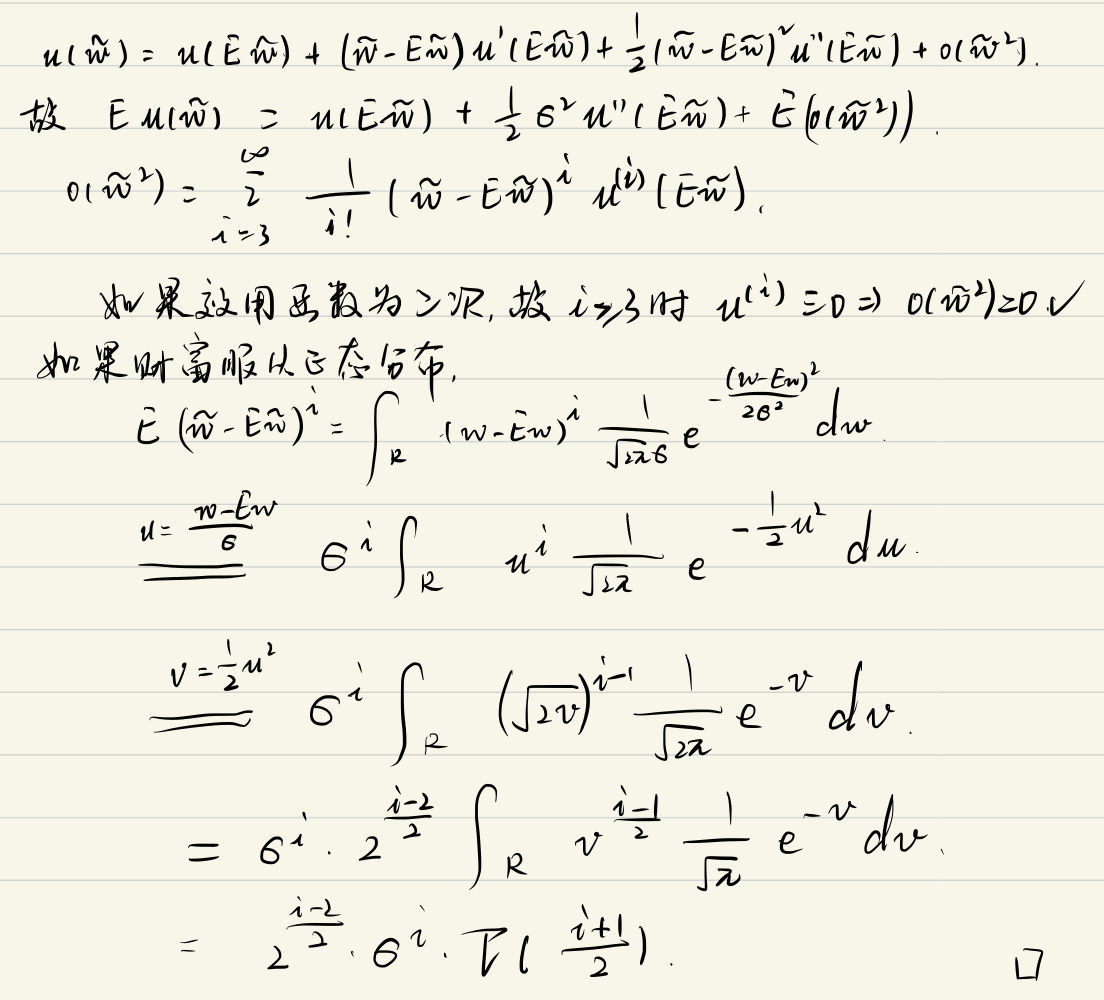 u(w̃) = u(Ew̃) + (w̃-Ew̃)u'(Ew̃) + 1/2(w̃-Ew̃)²u''(Ew̃) + o(w̃²).
故 Eu(w̃) = u(Ew̃) + 1/2 σ²u''(Ew̃) + E(o(w̃²)).
o(w̃²) = Σ_{i=3}^{∞} 1/i! (w̃-Ew̃)^i u^{(i)}(Ew̃).
如果效用函数为二次, 故 i≥3时 u^{(i)}≡0 ⇒ o(w̃²)=0 ✓
如果财富服从正态分布,
E(w̃-Ew̃)^i = ∫_R (w-Ew)^i 1/(√2π σ) e^{-(w-Ew)²/2σ²} dw.
u=(w-Ew)/σ ═ σ^i ∫_R u^i 1/√2π e^{-1/2 u²} du.
v=1/2 u² ═ σ^i ∫_R (√2v)^{i-1} 1/√2π e^{-v} dv.
= σ^i · 2^{(i-2)/2} ∫_R v^{(i-1)/2} 1/√π e^{-v} dv.
= 2^{(i-2)/2} · σ^i · Γ((i+1)/2). □